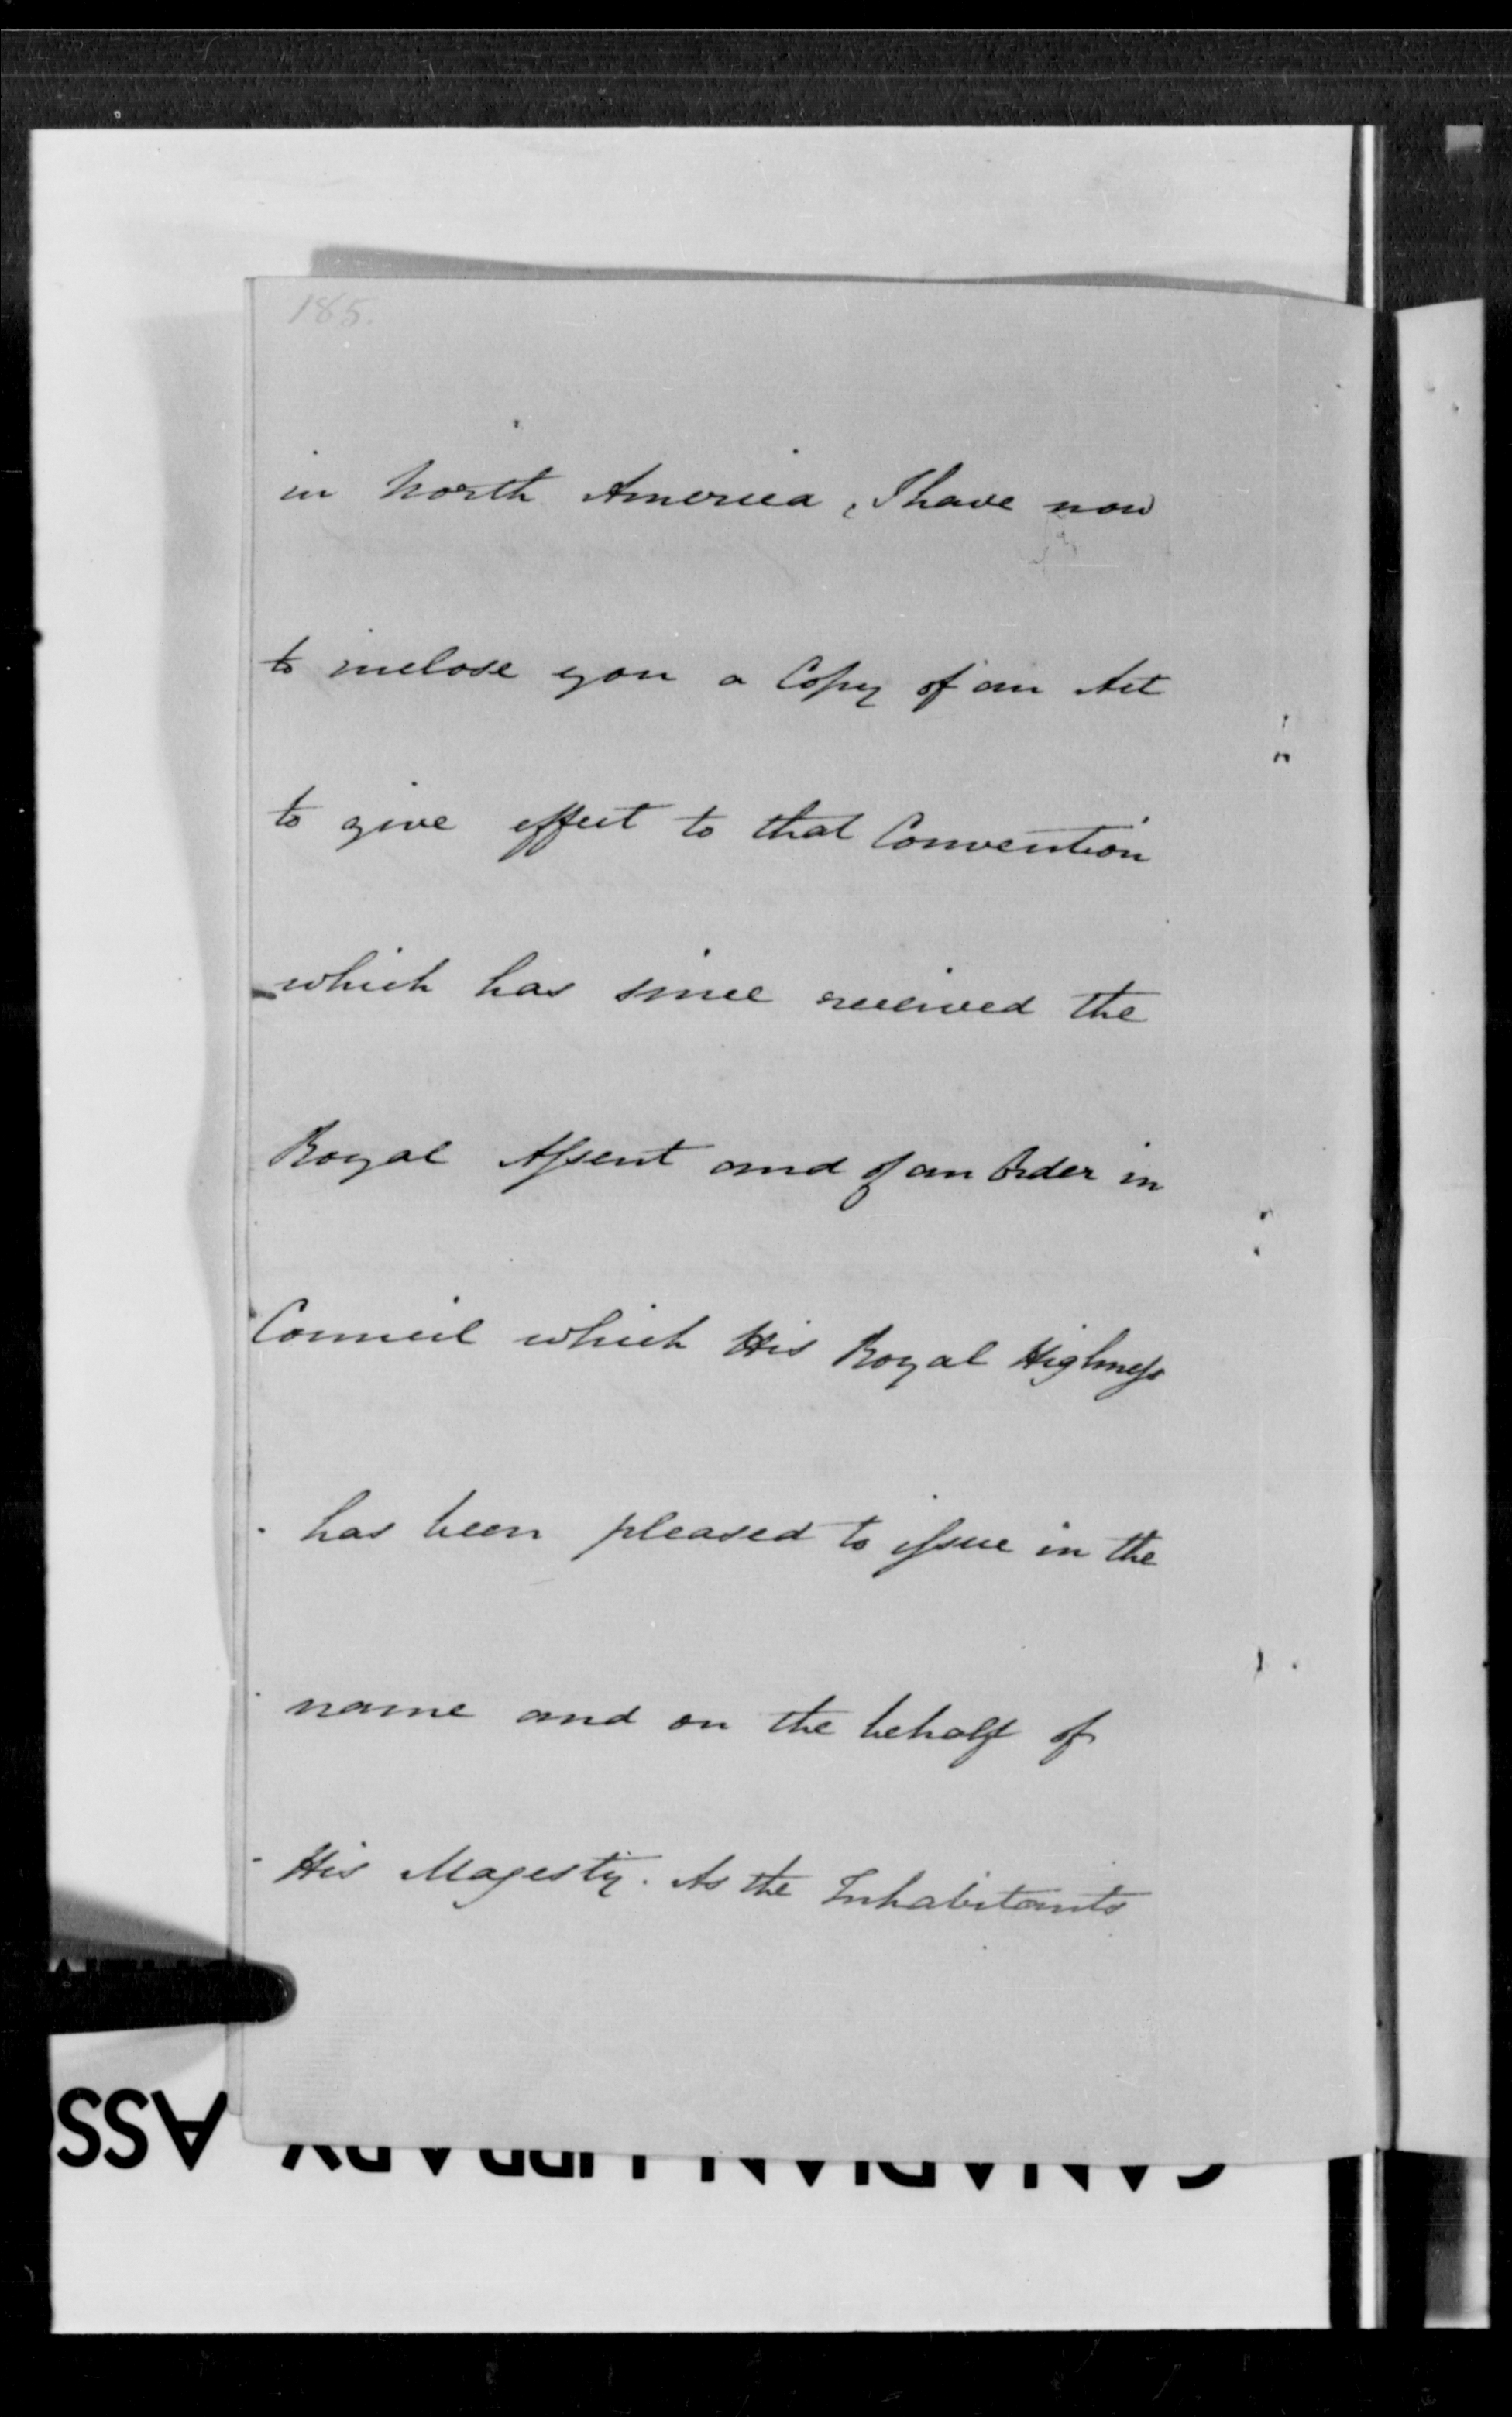 185.
in North America, I have now
to inclose you a Copy of an Act
to give effect to that Convention
which has since received the
Royal Assent and of an Order in
Council which His Royal Highness
has been pleased to issue in the
name and on the behalf of
His Majesty. As the Inhabitants
ASS